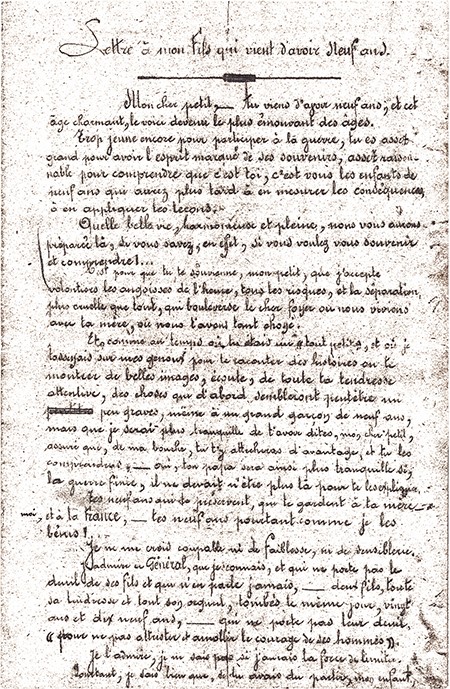 Lettre à mon Fils qui vient d'avoir Neuf ans.
Mon cher petit, — tu viens d'avoir neuf ans, et cet
âge charmant, le voici devenu le plus émouvant des âges.
Trop jeune encore pour participer à la guerre, tu es asset
grand pour avoir l'esprit marqué de ses souvenirs, asset raison-
nable pour comprendre que c'est toi, c'est vous les enfants de
neuf ans qui aurez plus tard à en mesurer les conséquences
à en appliquer les leçons.
Quelle belle vie, harmonieuse et pleine, nous vous aurons
préparée là, si vous savez, en effet, si vous voulez vous souvenir
et comprendre !...
C'est pour que tu te souvienne, mon petit, que j'accepte
volontiers les angoisses de l'heure, tous les risques, et la séparation
plus cruelle que tout, qui bouleverse le cher foyer où nous vivions
avec ta mère, où nous t'avons tant choyé.
Et, comme au temps où tu étais un "tout petit", et où je
t'asseyais sur mes genoux pour te raconter des histoires ou te
montrer de belles images, écoute, de toute ta tendresse
attentive, des choses qui d'abord sembleront peutêtre un
peu graves, même à un grand garçon de neuf ans,
mais que je serai plus tranquille de t'avoir dites, mon cher petit,
assuré que, de ma bouche, tu t'y attacheras d'avantage, et tu les
comprendras, — oui, ton papa sera ainsi plus tranquille si,
la guerre finie, il ne devait n'être plus là pour te les expliquer.
tes neuf ans qui te préservent, qui te gardent à ta mère
moi, et à la France, — tes neuf ans pourtant comme je les
bénis !
Je ne me crois coupable ni de faiblesse, ni de sensiblerie.
J'admire ce Général, que je connais, et qui ne porte pas le
deuil de ses fils et qui n'en parle jamais, — deux fils, toute
sa tendresse et tout son orgueil, tombés le même jour, vingt
ans et dix neuf ans, — qui ne porte pas leur deuil
"pour ne pas attrister et amollir le courage de ses hommes".
Je l'admire, je ne sais pas si j'aurais la force de l'imiter.
Pourtant, je sais bien que, si tu avais dû partir, mon enfant,